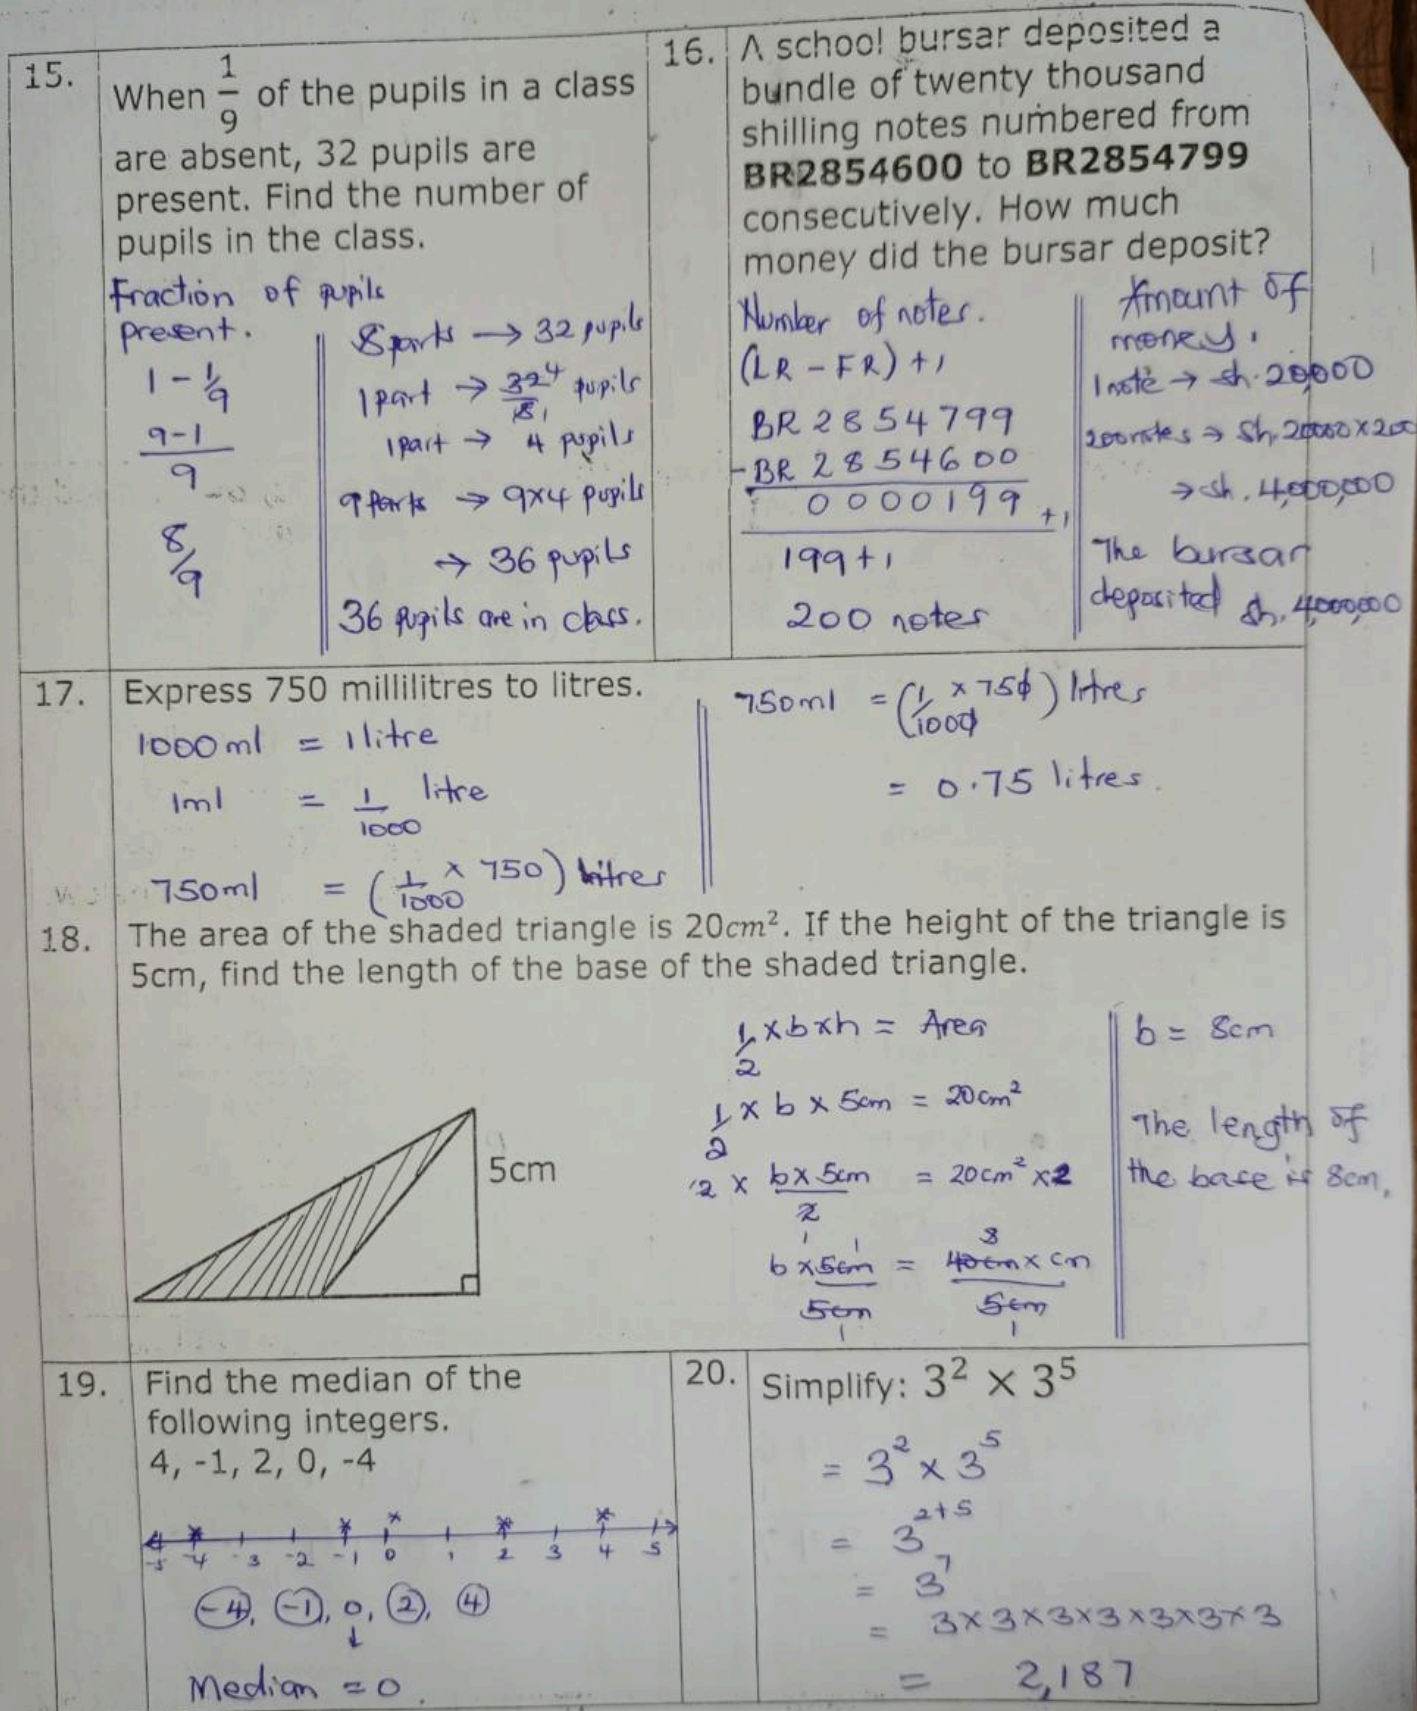 15.
When 1/9 of the pupils in a class
are absent, 32 pupils are
present. Find the number of
pupils in the class.
Fraction of pupils
present.
1 - 1/9
9-1
9
8/9
8 parts → 32 pupils
1 part → 32 4 pupils
8 1
1 part → 4 pupils
9 parts → 9x4 pupils
→ 36 pupils
36 pupils are in class.
16.
A school bursar deposited a
bundle of twenty thousand
shilling notes numbered from
BR2854600 to BR2854799
consecutively. How much
money did the bursar deposit?
Number of notes.
(LR - FR) + 1
BR 2854799
-BR 2854600
0000199 +1
199 + 1
200 notes
Amount of
money.
1 note → sh. 20,000
200 notes → Sh. 20000 x 200
→ sh. 4,000,000
The bursar
deposited sh. 4,000,000
17.
Express 750 millilitres to litres.
1000ml = 1 litre
1ml = 1/1000 litre
750ml = (1/1000 x 750) litres
750ml = (1/1000 x 750) litres
= 0.75 litres.
18.
The area of the shaded triangle is 20cm². If the height of the triangle is
5cm, find the length of the base of the shaded triangle.
5cm
1/2 x b x h = Area
1/2 x b x 5cm = 20cm²
2 x b x 5cm = 20cm² x 2
2
1 1 8
b x 5cm = 40cm x cm
5cm 5cm
1 1
b = 8cm
The length of
the base is 8cm.
19.
Find the median of the
following integers.
4, -1, 2, 0, -4
-5 -4 -3 -2 -1 0 1 2 3 4 5
-4, -1, 0, 2, 4
↓
Median = 0.
20.
Simplify: 3² × 3⁵
= 3² x 3⁵
= 3²⁺⁵
= 3⁷
= 3x3x3x3x3x3x3
= 2,187